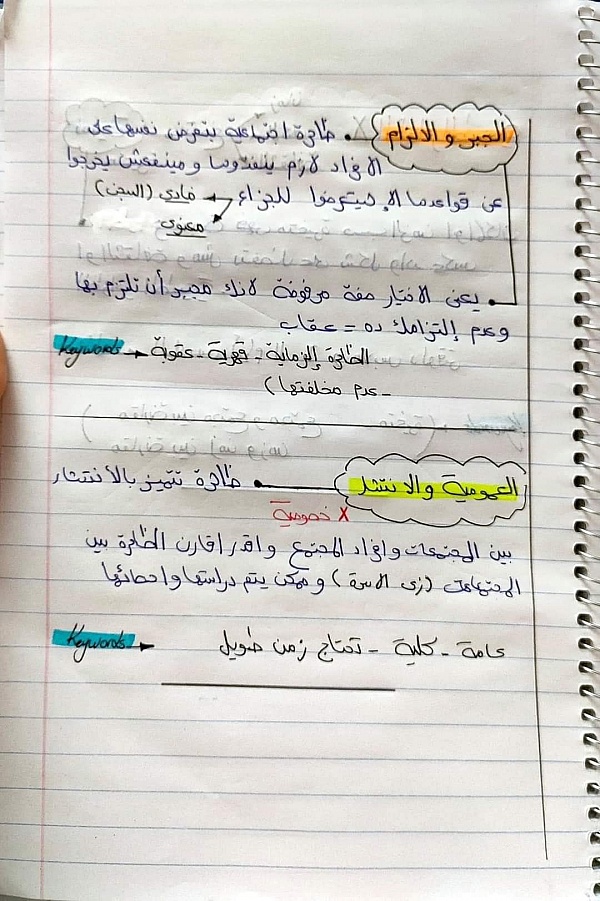 الجبر والالزام • ظاهرة اجتماعية بتفرض نفسها على
الافراد لازم ينفذوها ومينفعش يخرجوا
عن قواعدها الا هيتعرضوا للجزاء مادي (السجن)
معنوي
• يعني الاختيار صفة مرفوضة لانك مجبر أن تلتزم بها
وعدم إلتزامك ده = عقاب
Keywords الظاهرة إلزامية - قهرية - عقوبة
- عدم مخلفتها)
العمومية والانتشار • ظاهرة تتميز بالأنتشار
X خصوصية
بين المجتمعات وافراد المجتمع واقدر اقارن الظاهرة بين
المجتمعات (زي الاسرة) وممكن يتم دراستها واحصائها
Keywords عامة - كلية - تحتاج زمن طويل